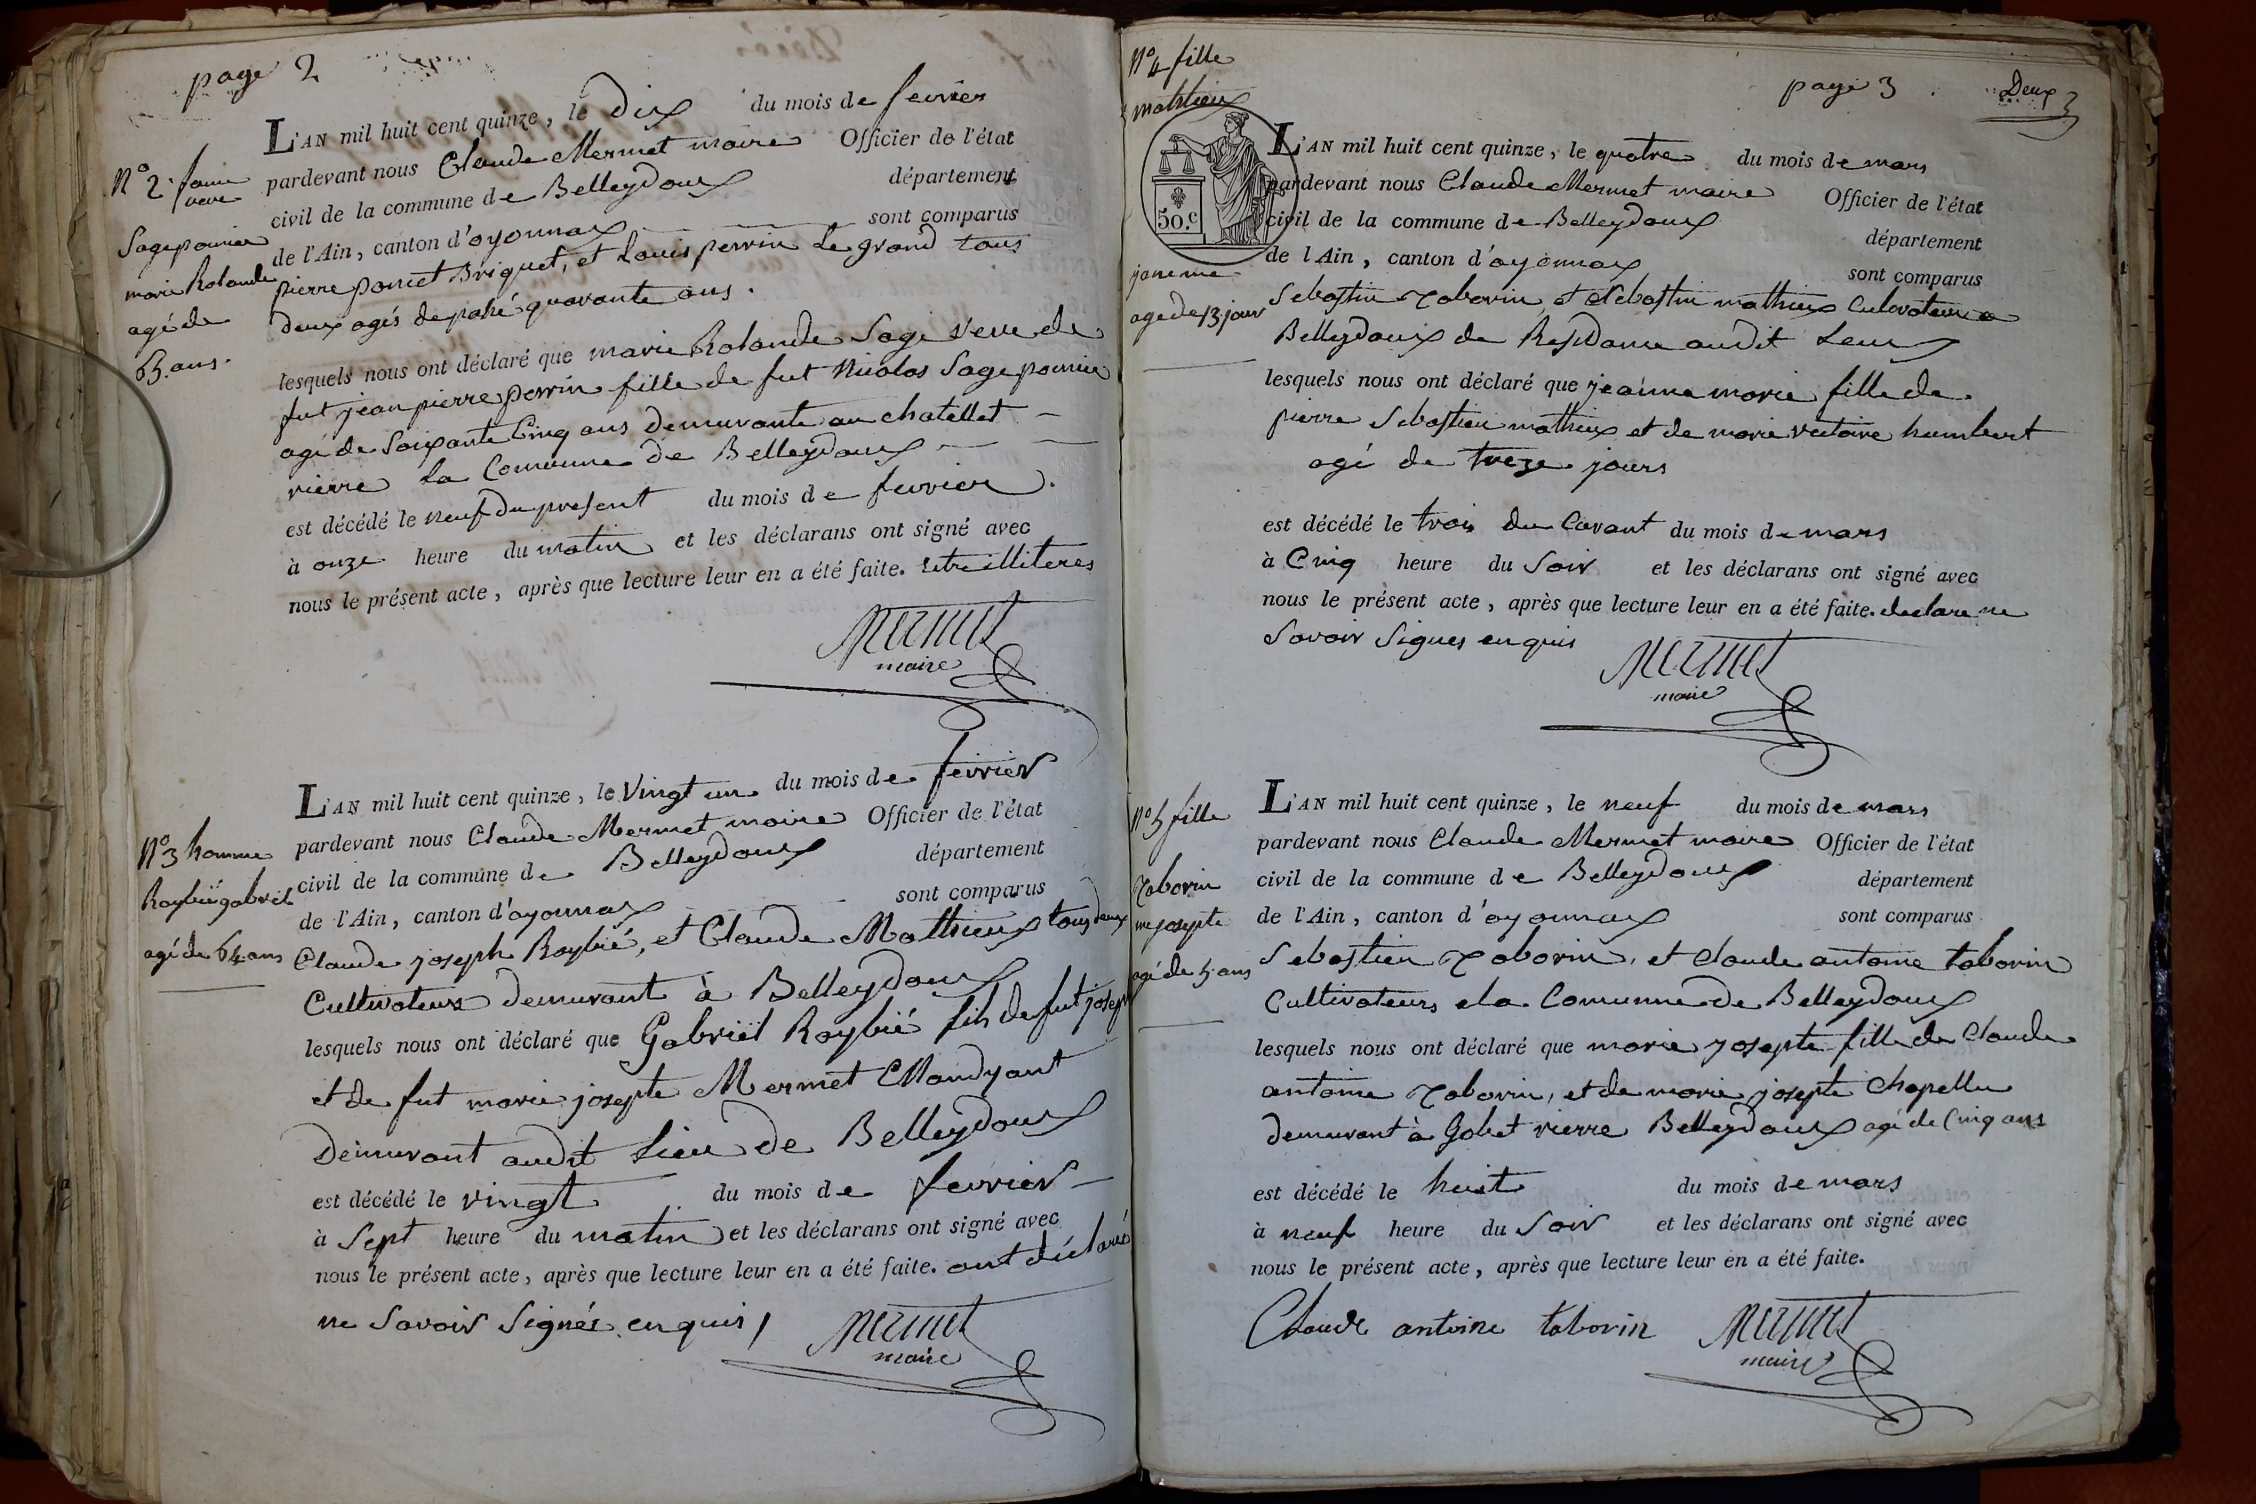 page 2
L'AN mil huit cent quinze, le Dix du mois de fevrier
pardevant nous Claude Mermet maire Officier de l'état
civil de la commune de Belleydoux département
de l'Ain, canton d'oyonnax sont comparus
pierre poncet Briquet, et Louis perrin Le grand tous
deux agés de passé quarante ans.
lesquels nous ont déclaré que marie Rolande Sage veve de
fut jean pierre perrin fille de fut Nicolas Sage pannier
agé de Soixante Cinq ans demurante au chatellet
rierre la Comunne de Belleydoux
est décédé le neuf du present du mois de fevrier.
à onze heure du matin et les déclarans ont signé avec
nous le présent acte, après que lecture leur en a été faite. illiteres
Mermet
maire
N° 2. fame
veve
Sage pannier
marie Rolande
agé de
65. ans.
L'AN mil huit cent quinze, le Vingt un du mois de fevrier
pardevant nous Claude Mermet maire Officier de l'état
civil de la commune de Belleydoux département
de l'Ain, canton d'oyonnax sont comparus
Claude joseph Raybié, et Claude Mathieux tous deux
Cultivateurs demurant à Belleydoux
lesquels nous ont déclaré que Gabriël Raybié fils de fut joseph
et de fut marie josepte Mermet Mandyant
Demurant audit Lieu de Belleydoux
est décédé le vingt du mois de fevrier
à Sept heure du matin et les déclarans ont signé avec
nous le présent acte, après que lecture leur en a été faite. ont déclaré
ne Savoir Signés enquis
Mermet
maire
N° 3 homme
Raybié gabriel
agé de 64 ans
page 3
Deux
N° 4 fille
mathieux
50.c
jane me
age de 13. jour
L'AN mil huit cent quinze, le quatre du mois de mars
pardevant nous Claude Mermet maire Officier de l'état
civil de la commune de Belleydoux département
de l'Ain, canton d'oyonnax sont comparus
Sebastin Taborin, et Sebastin mathieux
Belleydoux de Residance audit Leux
lesquels nous ont déclaré que jeanne marie fille de
pierre Sebastien mathieux et de marie victoire humbert
agé de treze jours
est décédé le trois du Courant du mois de mars
à Cinq heure du Soir et les déclarans ont signé avec
nous le présent acte, après que lecture leur en a été faite. declare ne
Savoir Signes enquis
Mermet
maire
N° 5 fille
Taborin
me josepte
agé de 5 ans
L'AN mil huit cent quinze, le neuf du mois de mars
pardevant nous Claude Mermet maire Officier de l'état
civil de la commune de Belleydoux département
de l'Ain, canton d'oyonnax sont comparus
Sebastien Taborin, et Claude antoine taborin
Cultivateurs de la Comunne de Belleydoux
lesquels nous ont déclaré que marie josepte fille de Claude
antoine Taborin, et de marie josepte Chapellu
demurant à Gobet rierre Belleydoux agé de Cinq ans
est décédé le huit du mois de mars
à neuf heure du Soir et les déclarans ont signé avec
nous le présent acte, après que lecture leur en a été faite.
Claude antoine taborin
Mermet
maire